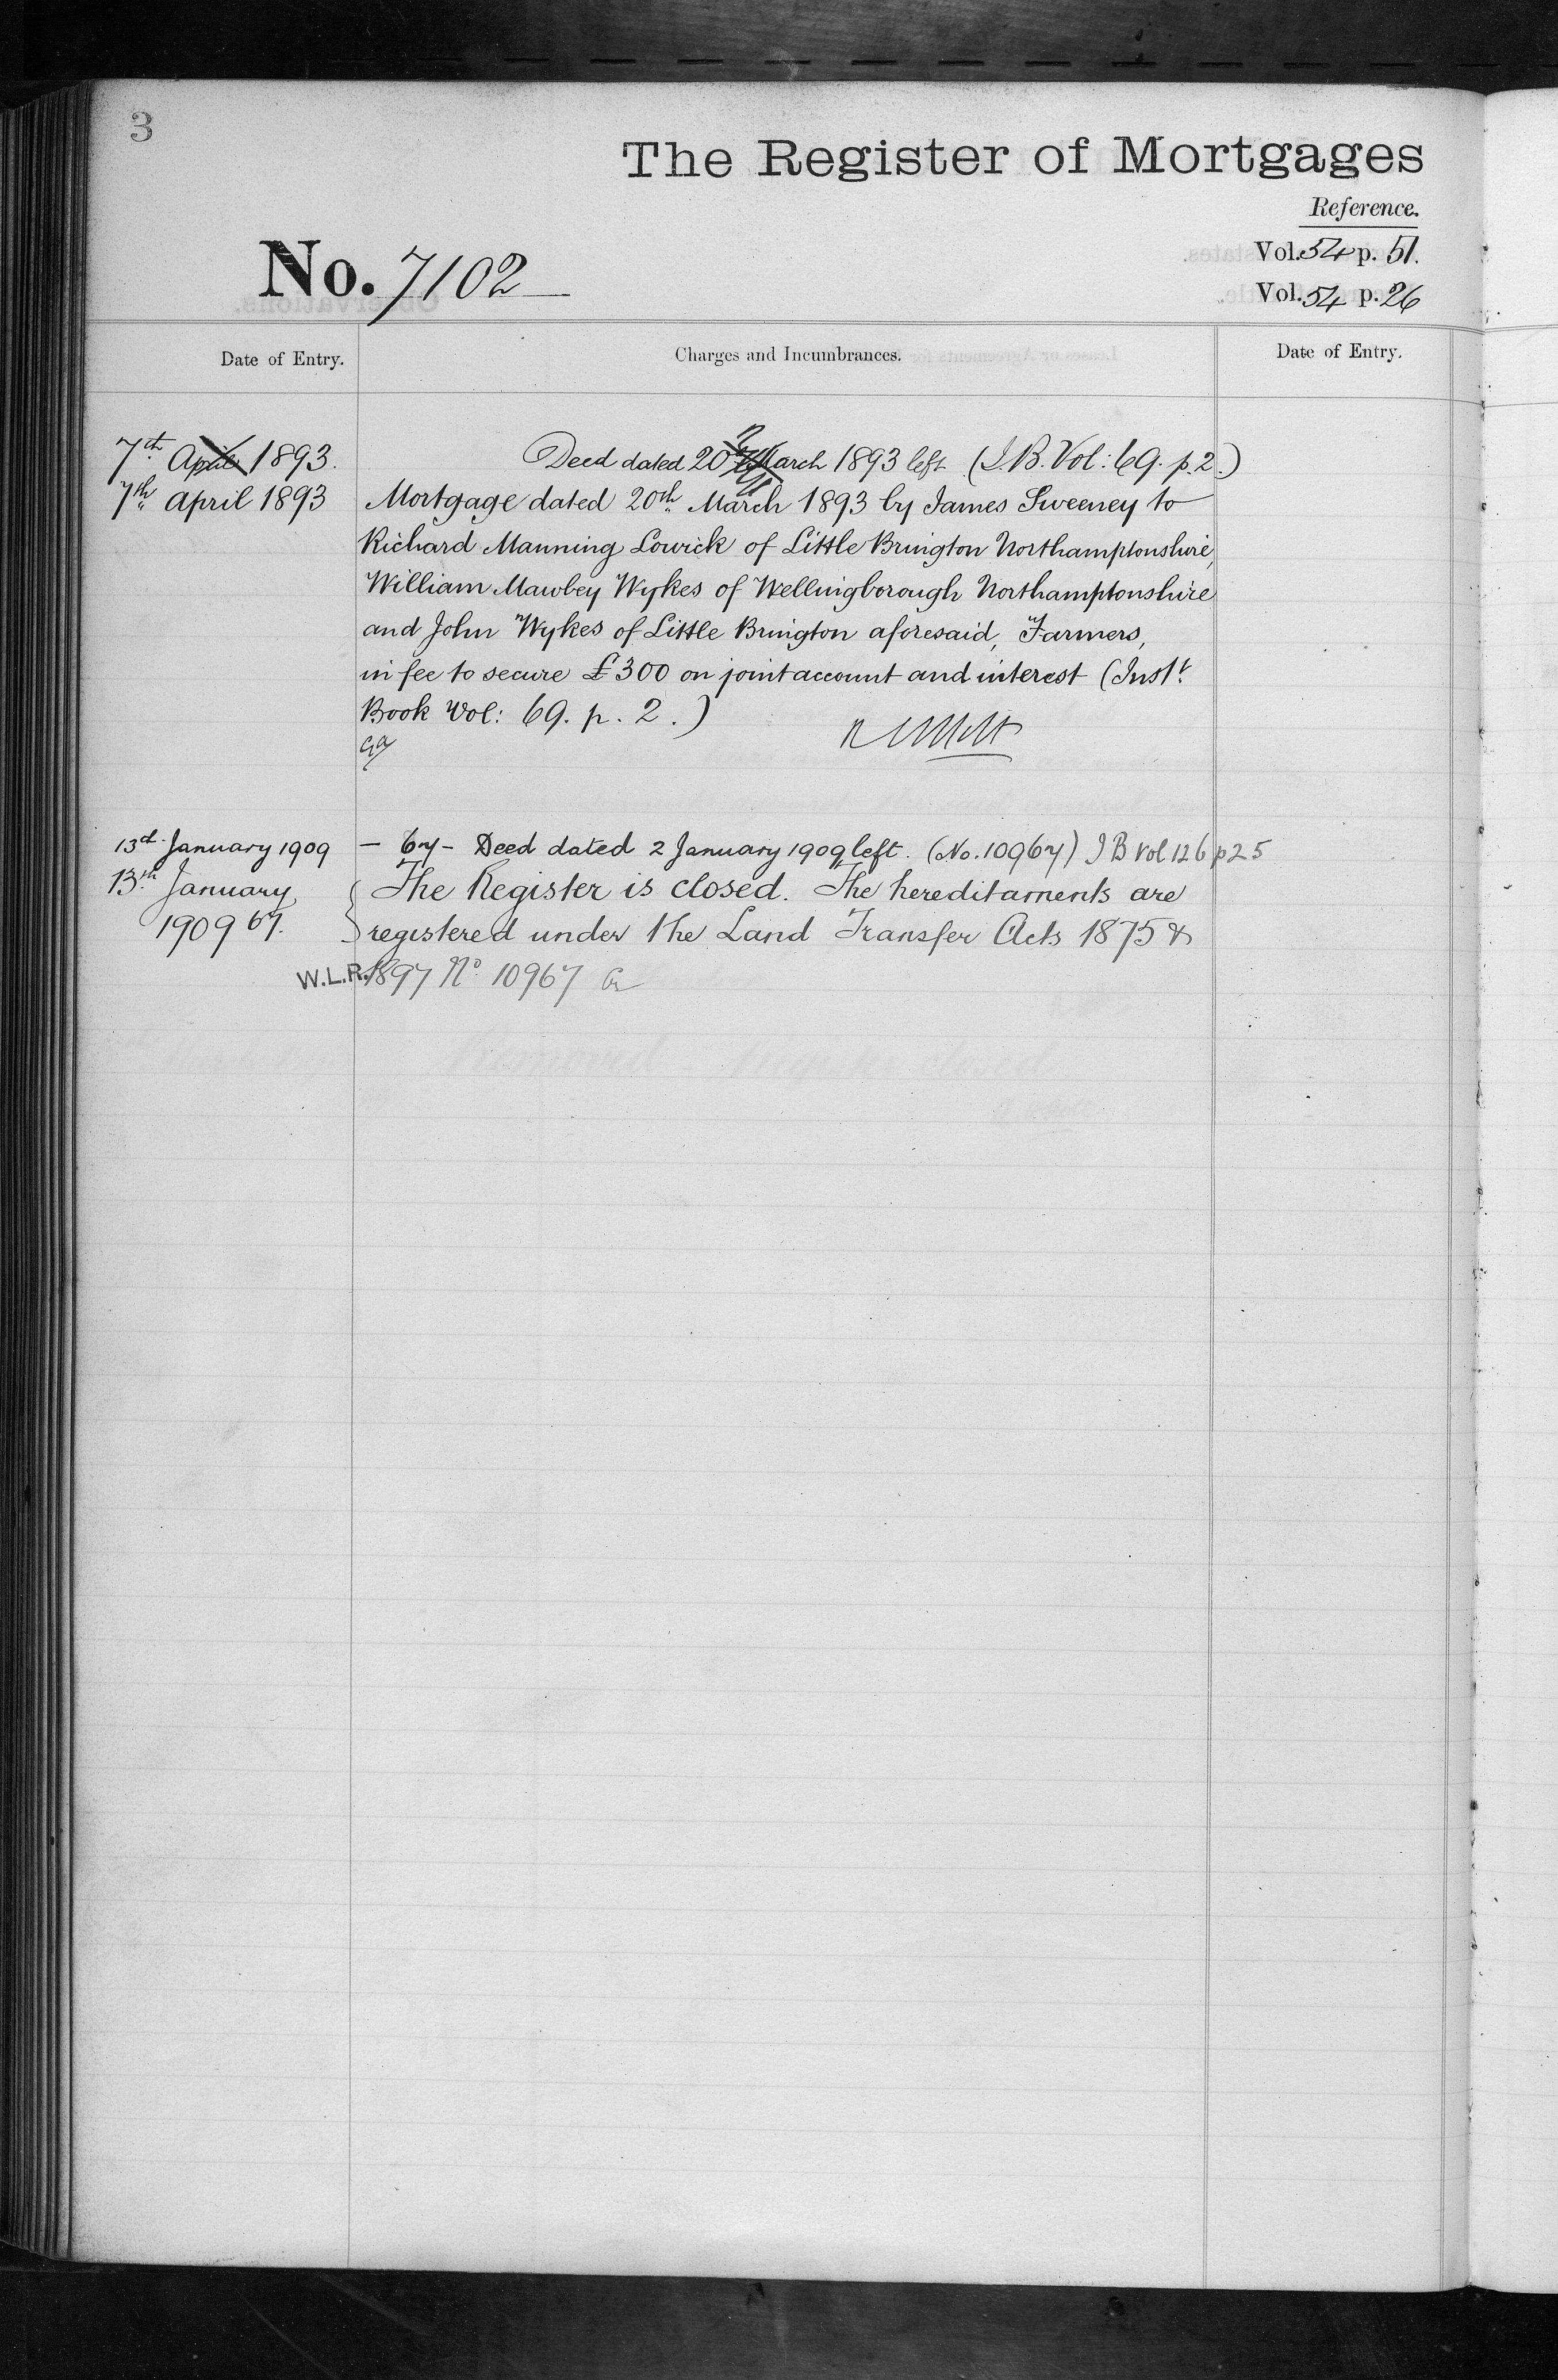 3
The Register of Mortgages
Reference.
Vol. 54 p. 51.
No. 7102
Vol. 54 p. 26
Date of Entry. Charges and Incumbrances. Date of Entry.
7th April 1893. Deed dated 20 March 1893 left (I.B. Vol: 69. p. 2.)
7th April 1893 Mortgage dated 20th March 1893 by James Sweeney to
Richard Manning Lowick of Little Brington Northamptonshire,
William Mawbey Wykes of Wellingborough Northamptonshire
and John Wykes of Little Brington aforesaid, Farmers,
in fee to secure £300 on joint account and interest (Inst.t
Book Vol: 69. p. 2.)
13th January 1909 — 67 — Deed dated 2 January 1909 left. (No. 10967) I B Vol 126 p 25
13th January The Register is closed. The hereditaments are
1909 67. registered under the Land Transfer Acts 1875 &
W.L.R. 1897 No 10967